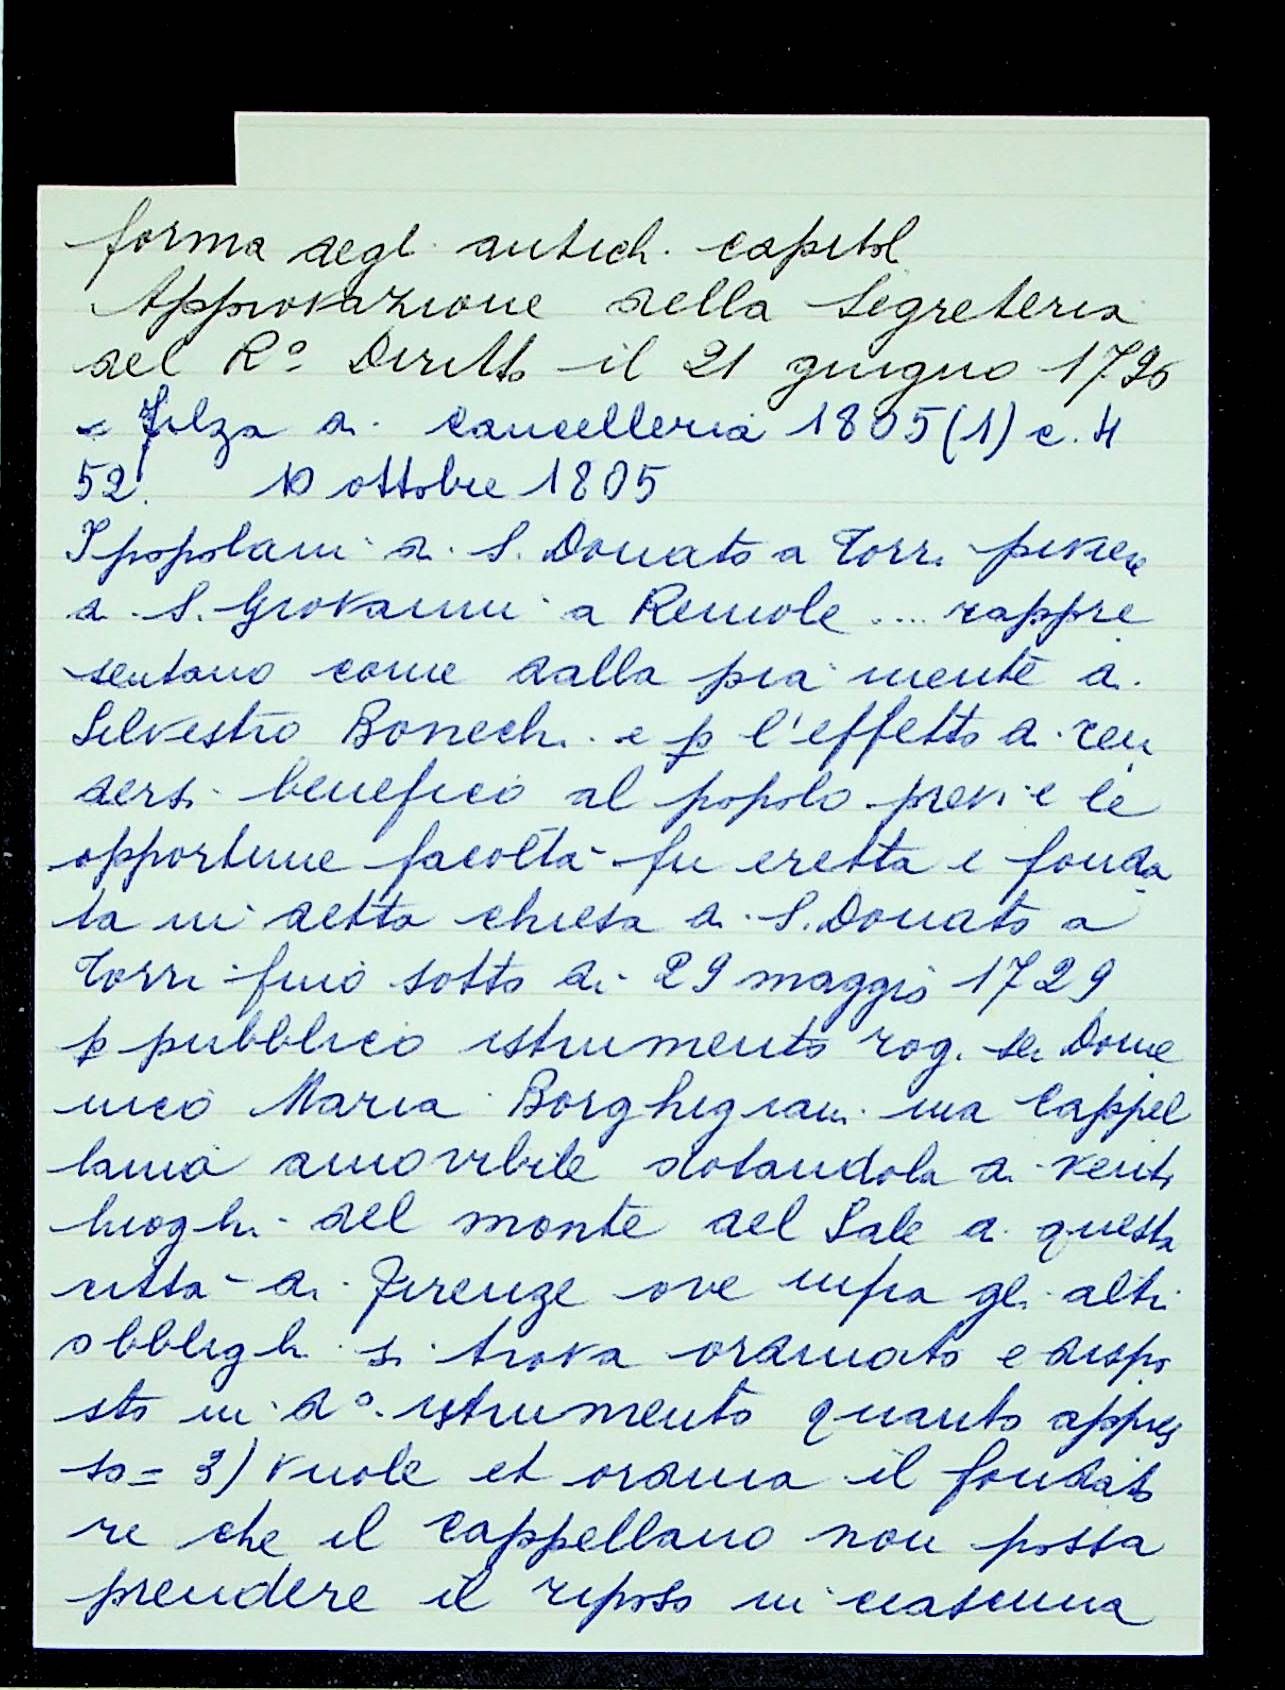 forma degli antichi capitoli
Approvazione della Segreteria
del R° Diritto il 21 giugno 1796
= Filza di cancelleria 1805 (1) c. H
52. 10 ottobre 1805
I popolani di S. Donato a Torri piviere
di S. Giovanni a Remole .... rappre
sentano come dalla pia mente di
Silvestro Bonechi e p l'effetto di ren
dersi benefico al popolo previe le
opportune facoltà fu eretta e fonda
ta in detta chiesa di S. Donato a
Torri fino sotto dì 29 maggio 1729
p pubblico istrumento rog. ser Dome
nico Maria Borghigiani una Cappel
lania amovibile dotandola di venti
luoghi del monte del Sale di questa
città di Firenze ove infra gli altri
obblighi si trova ordinato e dispo
sto in d° istrumento quanto appres
so = 3) vuole et ordina il fondato
re che il cappellano non possa
prendere il riposo in ciascuna